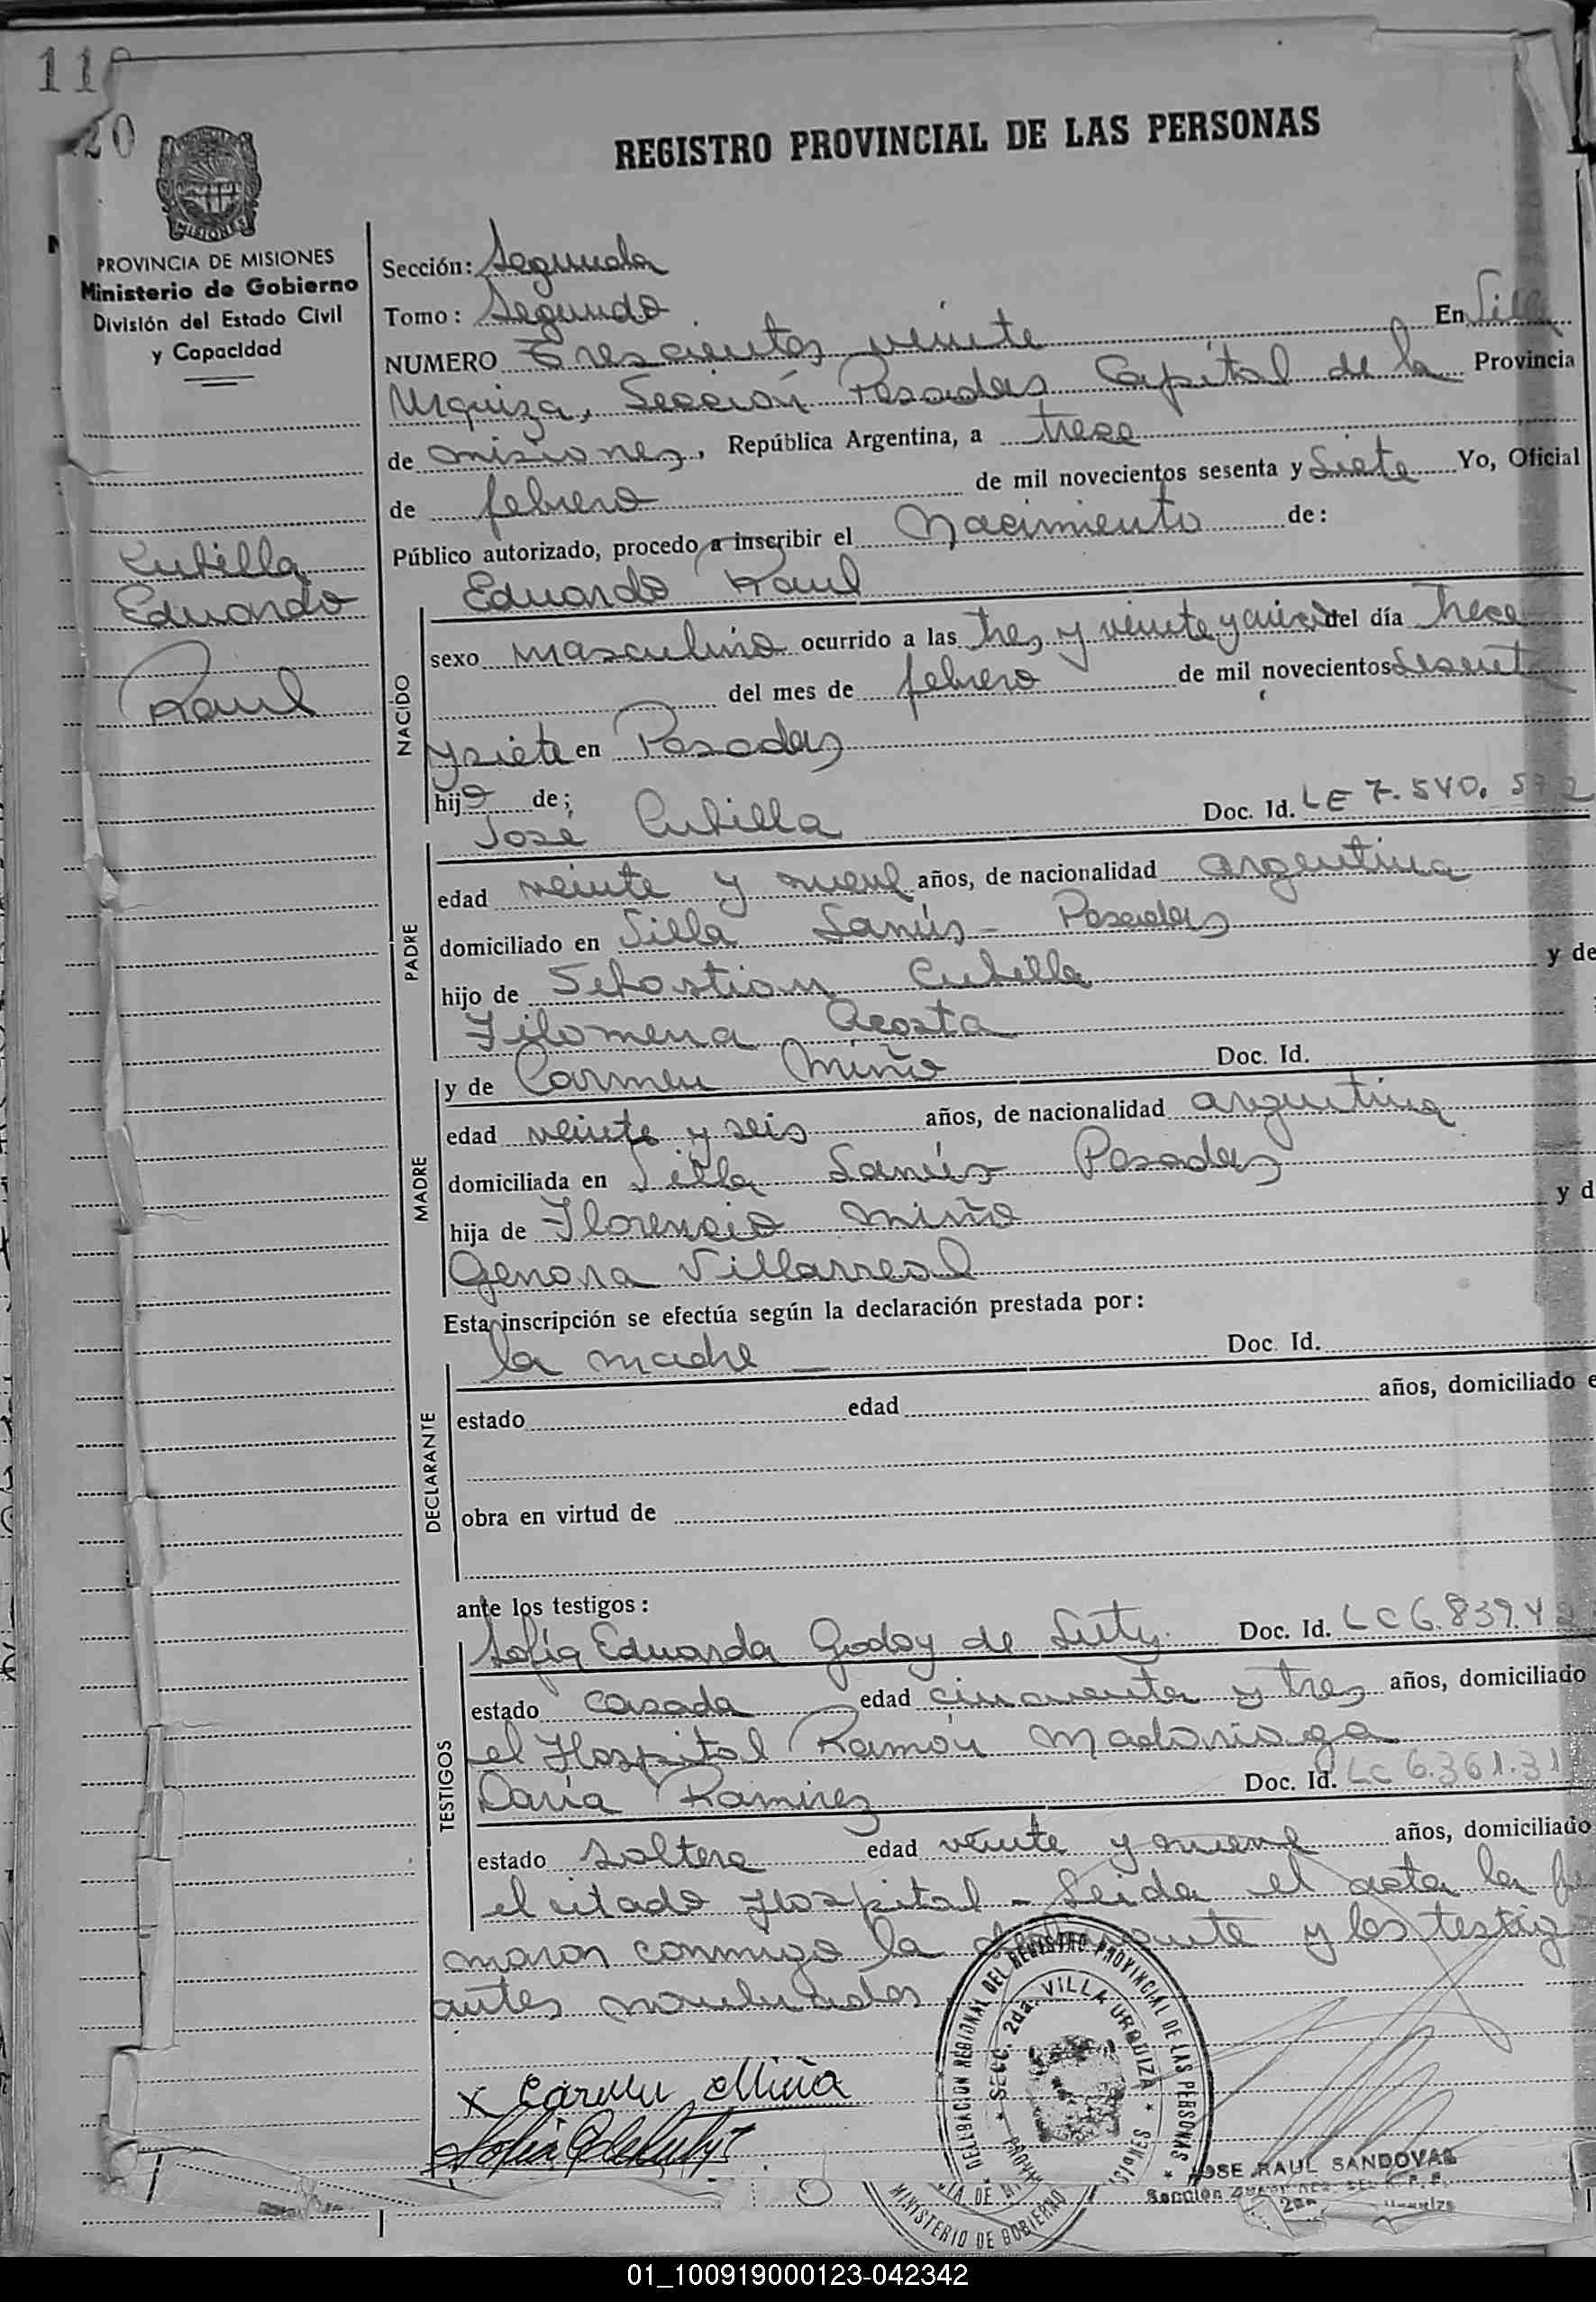 11
20
REGISTRO PROVINCIAL DE LAS PERSONAS
MISIONES
PROVINCIA DE MISIONES
Ministerio de Gobierno
División del Estado Civil
y Capacidad
Cubilla
Eduardo
Raul
Sección: Segunda
Tomo: Segundo
NUMERO Trescientos veinte En Villa
Urquiza, Sección Posadas Capital de la Provincia
de Misiones, República Argentina, a trece
de febrero de mil novecientos sesenta y Siete Yo, Oficial
Público autorizado, procedo a inscribir el Nacimiento de:
Eduardo Raul
NACIDO
sexo masculino ocurrido a las tres y veinte y cinco del día trece
del mes de febrero de mil novecientos sesenta
y siete en Posadas
hijo de;
José Cubilla Doc. Id. LE 7.540.
PADRE
edad veinte y nueve años, de nacionalidad argentina
domiciliado en Villa Lanús - Posadas
hijo de Sebastian Cubilla y de
Filomena Acosta
y de Carmen Miño Doc. Id.
MADRE
edad veinte y seis años, de nacionalidad argentina
domiciliada en Villa Lanús Posadas
hija de Florencio Miño y d
Genora Villarreal
Esta inscripción se efectúa según la declaración prestada por:
la madre — Doc. Id.
DECLARANTE
estado edad años, domiciliado e
obra en virtud de
ante los testigos:
Sofía Eduarda Godoy de Doc. Id. LC 6.839.42
TESTIGOS
estado casada edad cincuenta y tres años, domiciliado
el Hospital Ramón Madariaga
Daría Ramirez Doc. Id. LC 6.361.31
estado soltera edad veinte y nueve años, domiciliado
el citado Hospital - Leida el acta la fir
maron conmigo la declarante y los testig
antes nombrados
x Carmen Miño
DELEGACION REGIONAL DEL REGISTRO PROVINCIAL DE LAS PERSONAS
SECC. 2da. VILLA URQUIZA
MINISTERIO DE GOBIERNO
JOSE RAUL SANDOVAL
Sección
01_100919000123-042342